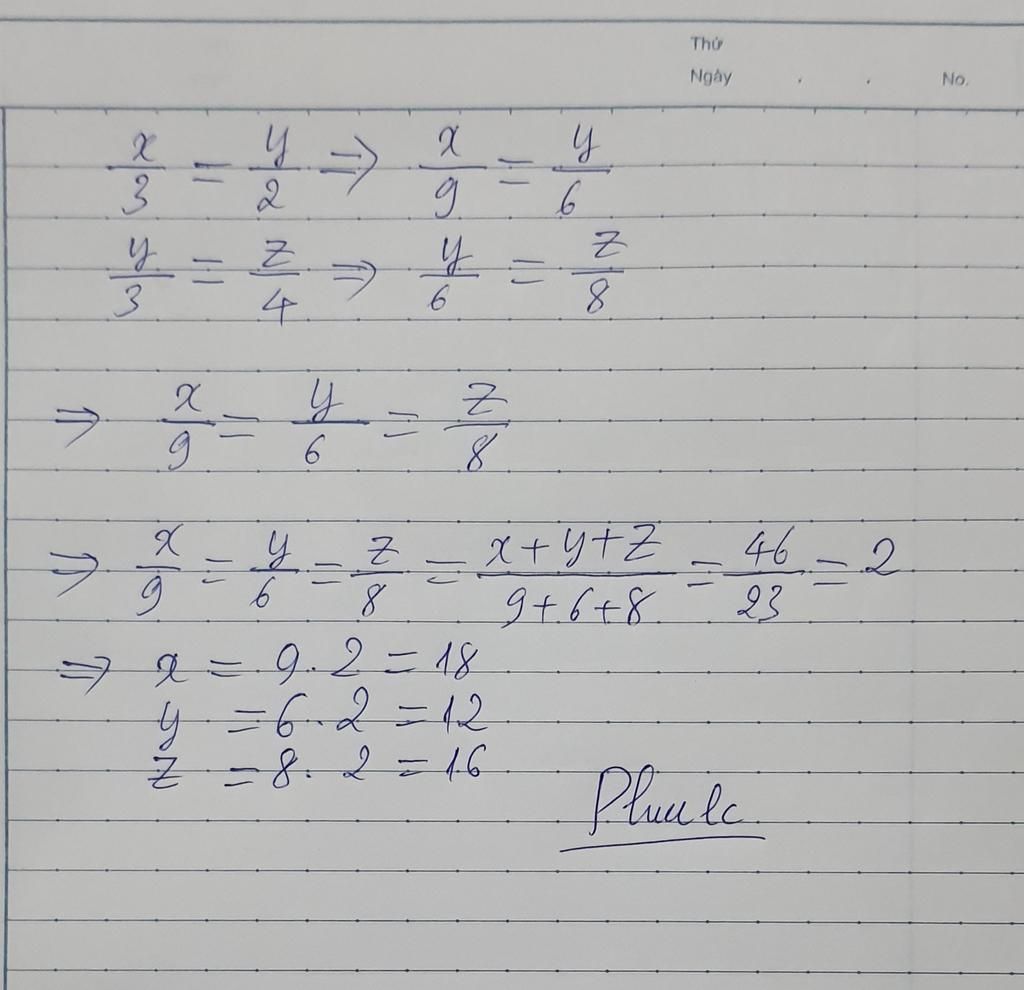 Thứ
Ngày . . No.
x/3 = y/2 ⇒ x/9 = y/6
y/3 = z/4 ⇒ y/6 = z/8
⇒ x/9 = y/6 = z/8
⇒ x/9 = y/6 = z/8 = (x+y+z)/(9+6+8) = 46/23 = 2
⇒ x = 9.2 = 18
y = 6.2 = 12
z = 8.2 = 16